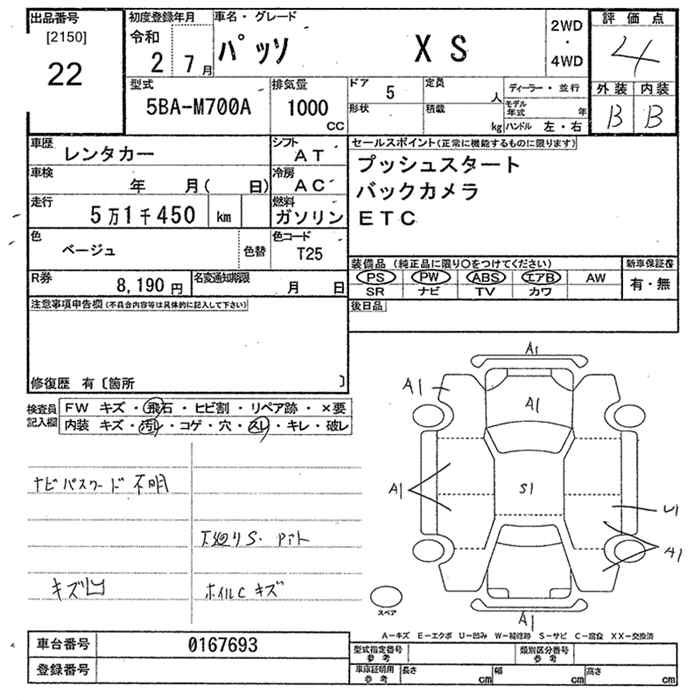 出品番号
[2150]
22
初度登録年月
令和
2 7月
車名・グレード
パッソ X S
2WD
・
4WD
評価点
4
外装 内装
B B
型式
5BA-M700A
排気量
1000
CC
ドア 5
形状
定員 人
積載 kg
ディーラー・並行
モデル年式 年
ハンドル 左・右
車歴 レンタカー
シフト AT
車検 年 月( 日)
冷房 AC
走行 5万1千450 km
燃料 ガソリン
色 ベージュ
色替
色コード T25
R券 8,190円
名変通知期限 月 日
セールスポイント(正常に機能するものに限ります)
プッシュスタート
バックカメラ
ETC
装備品 (純正品に限り○をつけてください)
新車保証書
PS PW ABS エアB AW
有・無
SR ナビ TV カワ
後日品
注意事項申告欄(不具合内容等は具体的に記入して下さい)
修復歴 有〔箇所 〕
検査員記入欄
FW キズ・飛石・ヒビ割・リペア跡・×要
内装 キズ・汚レ・コゲ・穴・スレ・キレ・破レ
ナビパスワード不明
下廻りS・
キズ凹
ホイルC キズ
A1
A1
A1
A1
S1
U1
A1
A1
スペア
A-キズ E-エクボ U-凹み W-補修跡 S-サビ C-腐食 XX-交換済
車台番号 0167693
登録番号
型式指定番号
参考
類別区分番号
参考
車庫証明用
参考
長さ cm 幅 cm 高さ cm